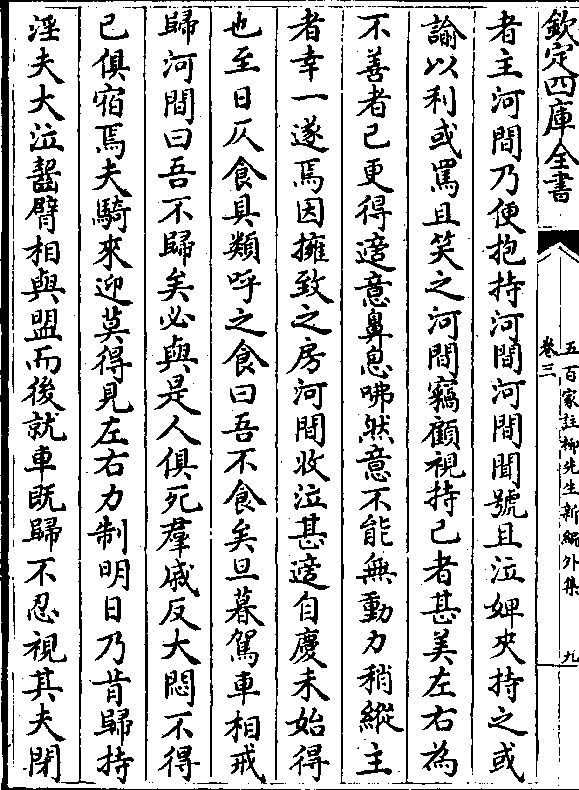 欽定四庫全書
五百家註柳先生新編外集
卷三
九
者主河間乃便抱持河間河間聞號且泣婢夾持之或
諭以利或罵且笑之河間竊顧視持己者甚美左右為
不善者已更得適意鼻息咈然意不能無動力稍縱主
者幸一遂焉因擁致之房河間收泣甚適自慶未始得
也至日仄食具類呼之食曰吾不食矣旦暮駕車相戒
歸河間曰吾不歸矣必與是人俱死羣戚反大悶不得
已俱宿焉夫騎來迎莫得見左右力制明日乃肯歸持
淫夫大泣齧臂相與盟而後就車既歸不忍視其夫閉